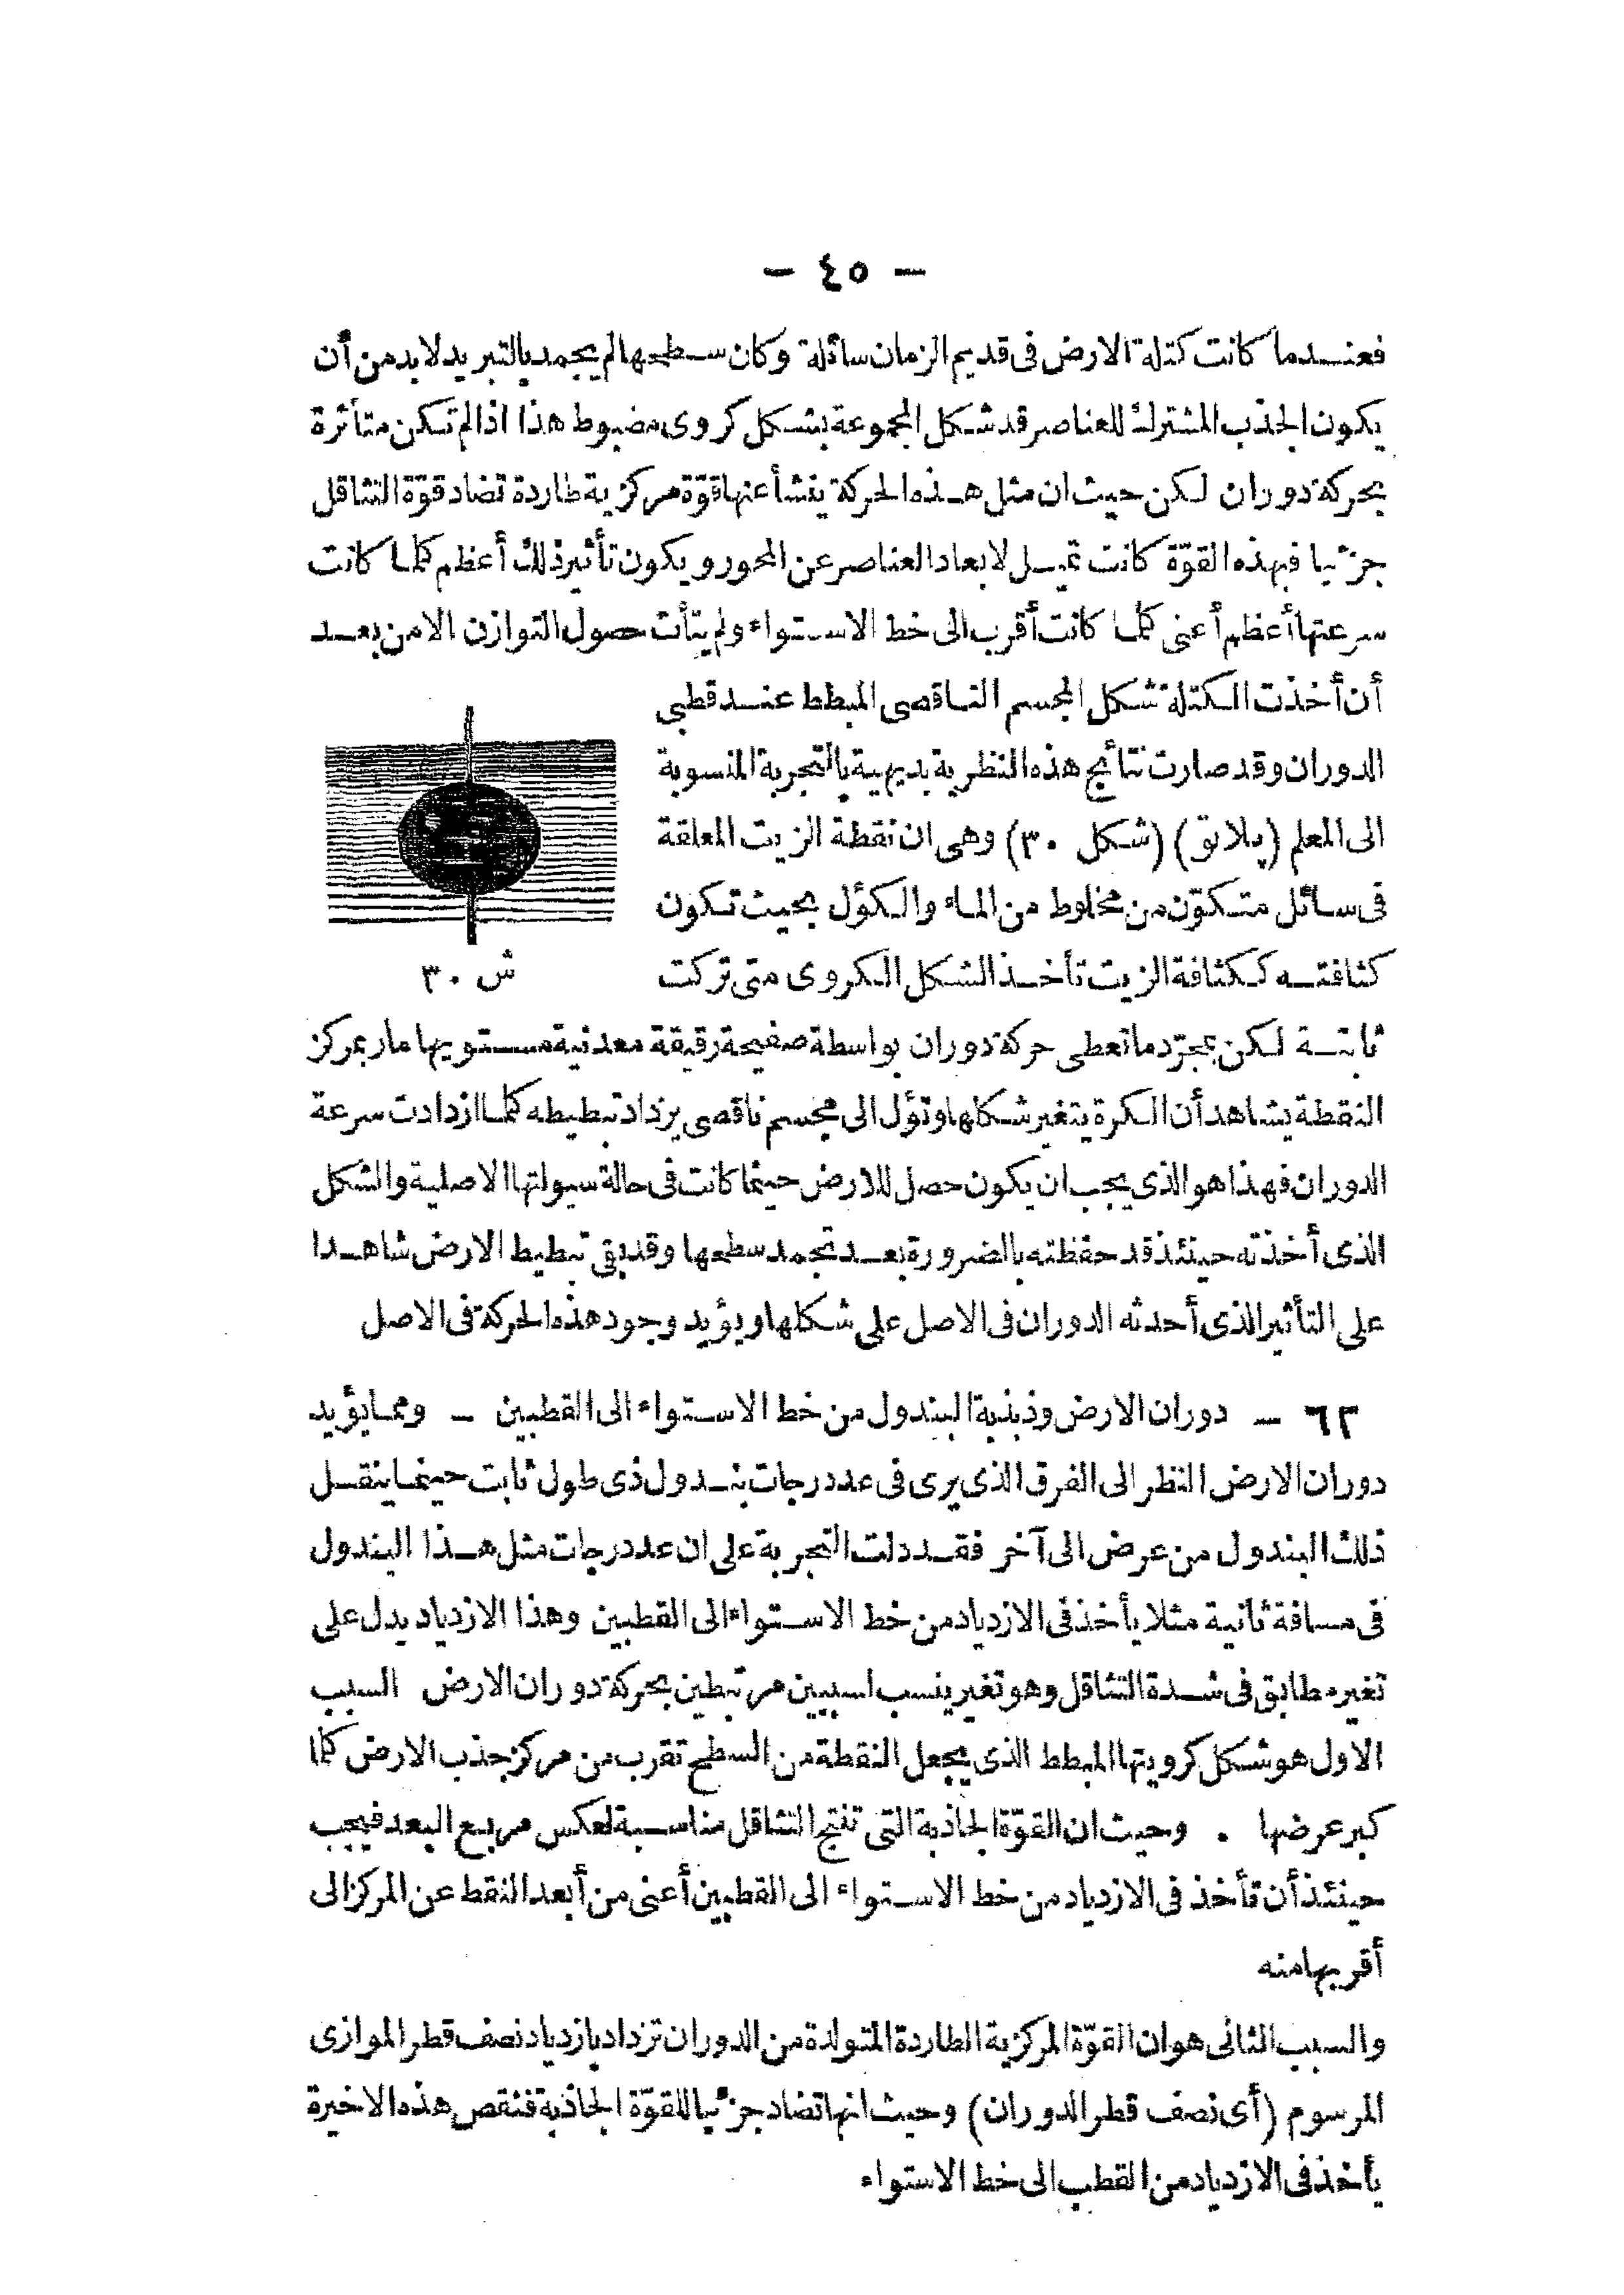 — ٤٥ —
فعندما كانت كتلة الارض فى قديم الزمان سائلة وكان سطحها لم يجمد بالتبريد لابد من أن
يكون الجذب المشترك للعناصر قد شكل المجموعة بشكل كروى مضبوط هذا اذا لم تكن متأثرة
بحركة دوران لكن حيث ان مثل هذه الحركة ينشأ عنها قوّة مركزية طاردة تضاد قوّة التثاقل
جزئيا فبهذه القوّة كانت تميل لابعاد العناصر عن المحور ويكون تأثير ذلك أعظم كلما كانت
سرعتها أعظم أعنى كلما كانت أقرب الى خط الاستواء ولم يتأت حصول التوازن الا من بعد
أن أخذت الكتلة شكل المجسم الناقصى المبطط عند قطبي
الدوران وقد صارت نتائج هذه النظرية بديهية بالتجربة المنسوبة
الى المعلم (پلاتو) (شكل ٣٠) وهى ان نقطة الزيت المعلقة
فى سائل متكوّن من مخلوط من الماء والكؤل بحيث تكون
كثافته ككثافة الزيت تأخذ الشكل الكروى متى تركت
ش ٣٠
ثابتة لكن بمجرّد ما تعطى حركة دوران بواسطة صفيحة رقيقة معدنية مستويها مار بمركز
النقطة يشاهد أن الكرة يتغير شكلها وتؤل الى مجسم ناقصى يزداد تبطيطه كلما ازدادت سرعة
الدوران فهذا هو الذى يجب ان يكون حصل للارض حينما كانت فى حالة سيولتها الاصلية والشكل
الذى أخذته حينئذ قد حفظته بالضرورة بعد تجمد سطحها وقد بقى تبطيط الارض شاهدا
على التأثير الذى أحدثه الدوران فى الاصل على شكلها ويؤيد وجود هذه الحركة فى الاصل
٦٢ — دوران الارض وذبذبة البندول من خط الاستواء الى القطبين — ومما يؤيد
دوران الارض النظر الى الفرق الذى يرى فى عدد رجات بندول ذى طول ثابت حينما ينقل
ذلك البندول من عرض الى آخر فقد دلت التجربة على ان عدد رجات مثل هذا البندول
فى مسافة ثانية مثلا يأخذ فى الازدياد من خط الاستواء الى القطبين وهذا الازدياد يدل على
تغير مطابق فى شدة التثاقل وهو تغير ينسب لسببين مرتبطين بحركة دوران الارض السبب
الاول هو شكل كرويتها المبطط الذى يجعل النقطة من السطح تقرب من مركز جذب الارض كلما
كبر عرضها . وحيث ان القوّة الجاذبة التى تنتج التثاقل مناسبة لعكس مربع البعد فيجب
حينئذ أن تأخذ فى الازدياد من خط الاستواء الى القطبين أعنى من أبعد النقط عن المركز الى
أقربها منه
والسبب الثانى هو ان القوّة المركزية الطاردة المتولدة من الدوران تزداد بازدياد نصف قطر الموازى
المرسوم (أى نصف قطر الدوران) وحيث انها تضاد جزئيا للقوّة الجاذبة فنقص هذه الاخيرة
يأخذ فى الازدياد من القطب الى خط الاستواء